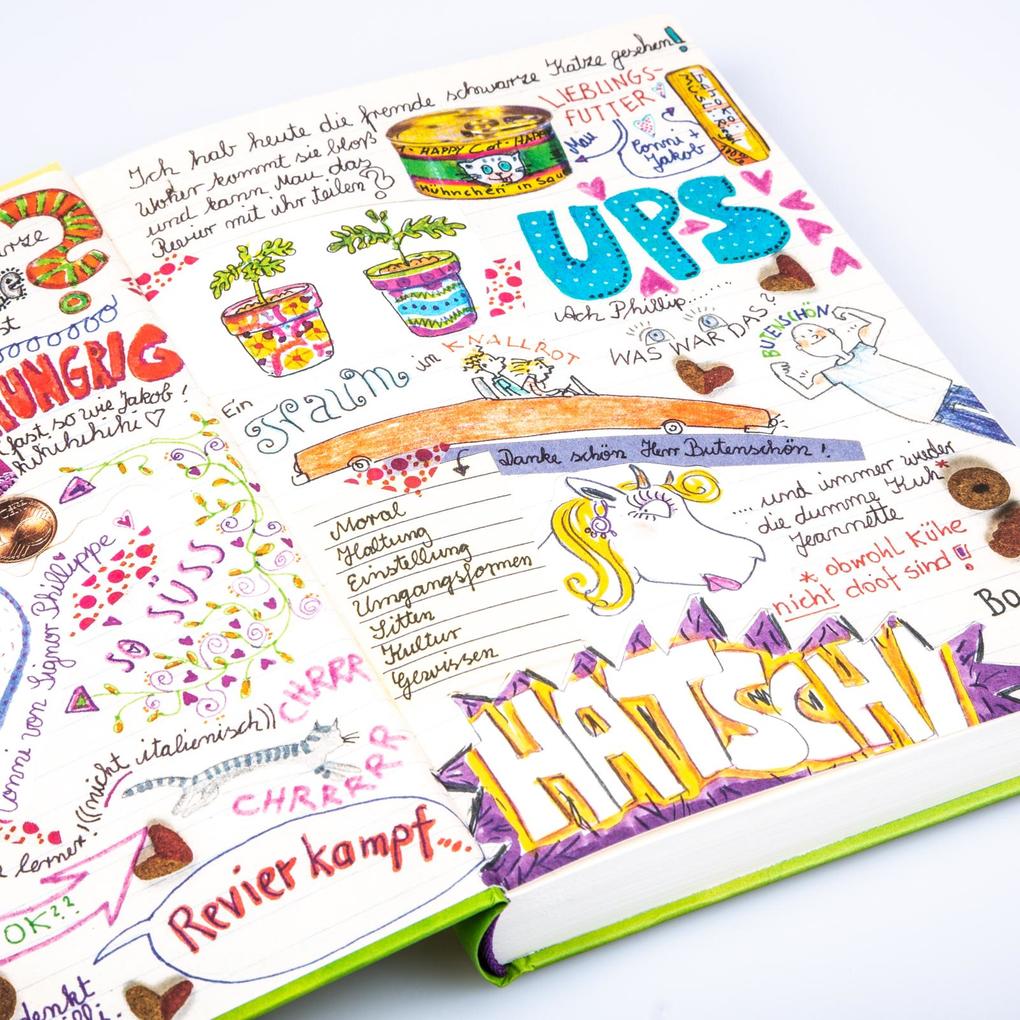 ?
st
HUNGRIG
fast so wie Jakob!
hihihihihi
SO SÜSS
Conni von Signor Phillippe
((nicht italienisch))
lerner!
CHRRR
CHRRR
CHRRRR
OK??
Revierkampf....
denkt
Ich hab heute die fremde schwarze Katze gesehen!
Woher kommt sie bloß
und kann Mau das
Revier mit ihr teilen?
HAPPY Cat
Hühnchen in
LIEBLINGS-
FUTTER
Mau
Conni +
Jakob
100%
UPS
Ach Phillip.......
WAS WAR DAS?
BUTENSCHÖN
Ein Traum in KNALLROT
Danke schön Herr Butenschön!
Moral
Haltung
Einstellung
Umgangsformen
Sitten
Kultur
Gewissen
.... und immer wieder
die dumme Kuh*
Jeannette
* obwohl Kühe
nicht doof sind!
Bo
HATSCHI